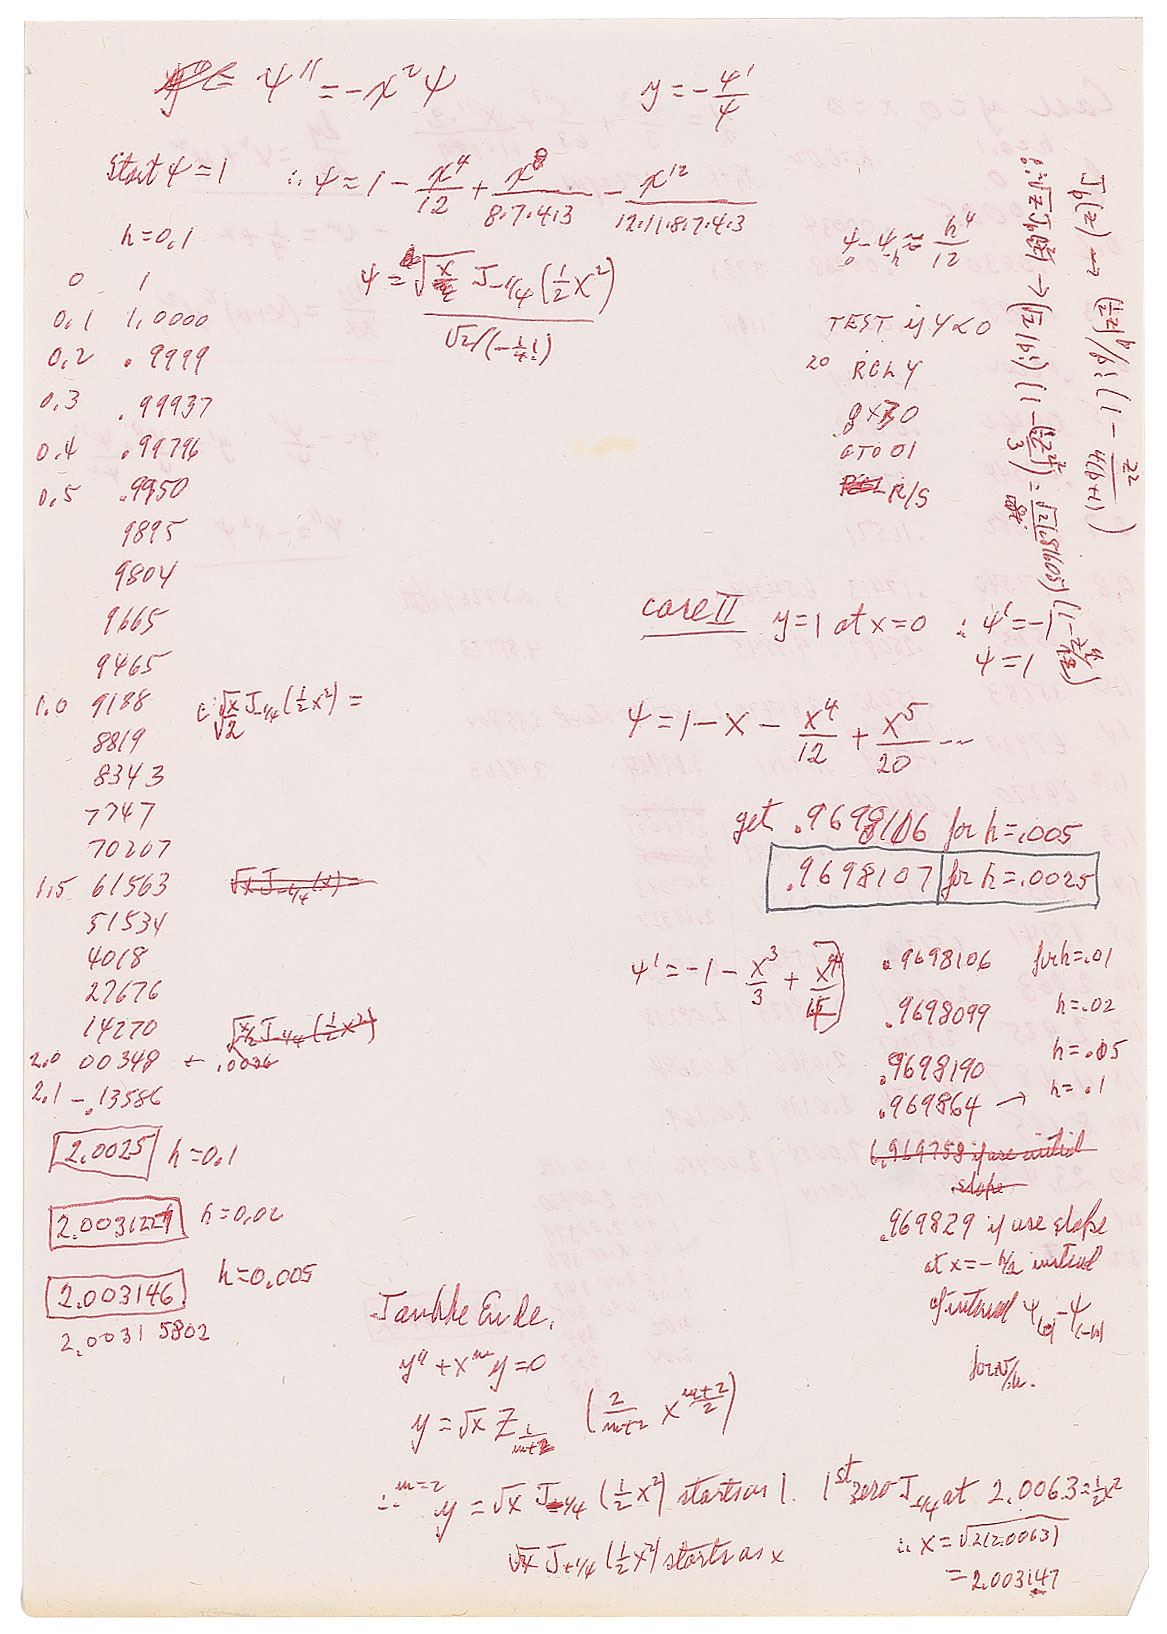 ψ'' = -x²ψ
y = -ψ'/ψ
Start ψ = 1 ∴ ψ = 1 - x⁴/12 + x⁸/8·7·4·3 - x¹²/12·11·8·7·4·3
h = 0.1
ψ₀ - ψ₋ₕ ≈ h⁴/12
0 1
0.1 1.0000
0.2 .9999
0.3 .99937
0.4 .99796
0.5 .9950
9895
9804
9665
9465
1.0 9188
8819
8343
7747
70207
1.5 61563
51534
4018
27676
14270
2.0 00348 ← .0036
2.1 -.13586
2.0025 h = 0.1
2.0031227 h = 0.02
2.003146 h = 0.005
2.00315802
J₋₁/₄(½x²)
√2/(-¼!)
√x/√2 J₋₁/₄(½x²) =
√x J₋₁/₄(x)
J₋₁/₄(½x²)
TEST if Y < 0
20 RCL Y
GTO 01
R/S
J_p(z) → (½z)^p/p! (1 - z²/4(p+1))
case II y = 1 at x = 0 ∴ ψ' = -1
ψ = 1
ψ = 1 - x - x⁴/12 + x⁵/20 ...
get .9698106 for h = .005
.9698107 for h = .0025
ψ' = -1 - x³/3 + x⁴/4
.9698106 for h = .01
.9698099 h = .02
.9698190 h = .05
.969864 → h = .1
6.969758 if use initial
slope
.969829 if use slope
at x = -h/2 instead
of interval ψ(0) - ψ(-h)
Jahnke Emde.
y'' + x^m y = 0
y = √x Z_{1/(m+2)} (2/(m+2) x^{(m+2)/2})
∴ m=2 y = √x J₋₁/₄ (½x²) starts as 1. 1st zero J₋₁/₄ at 2.0063 = ½x²
√x J₊₁/₄ (½x²) starts as x
∴ x = √2(2.0063)
= 2.003147